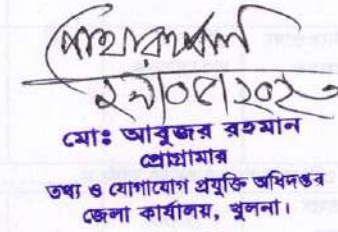 মোঃ আবুজর রহমান
প্রোগ্রামার
তথ্য ও যোগাযোগ প্রযুক্তি অধিদপ্তর
জেলা কার্যালয়, খুলনা।